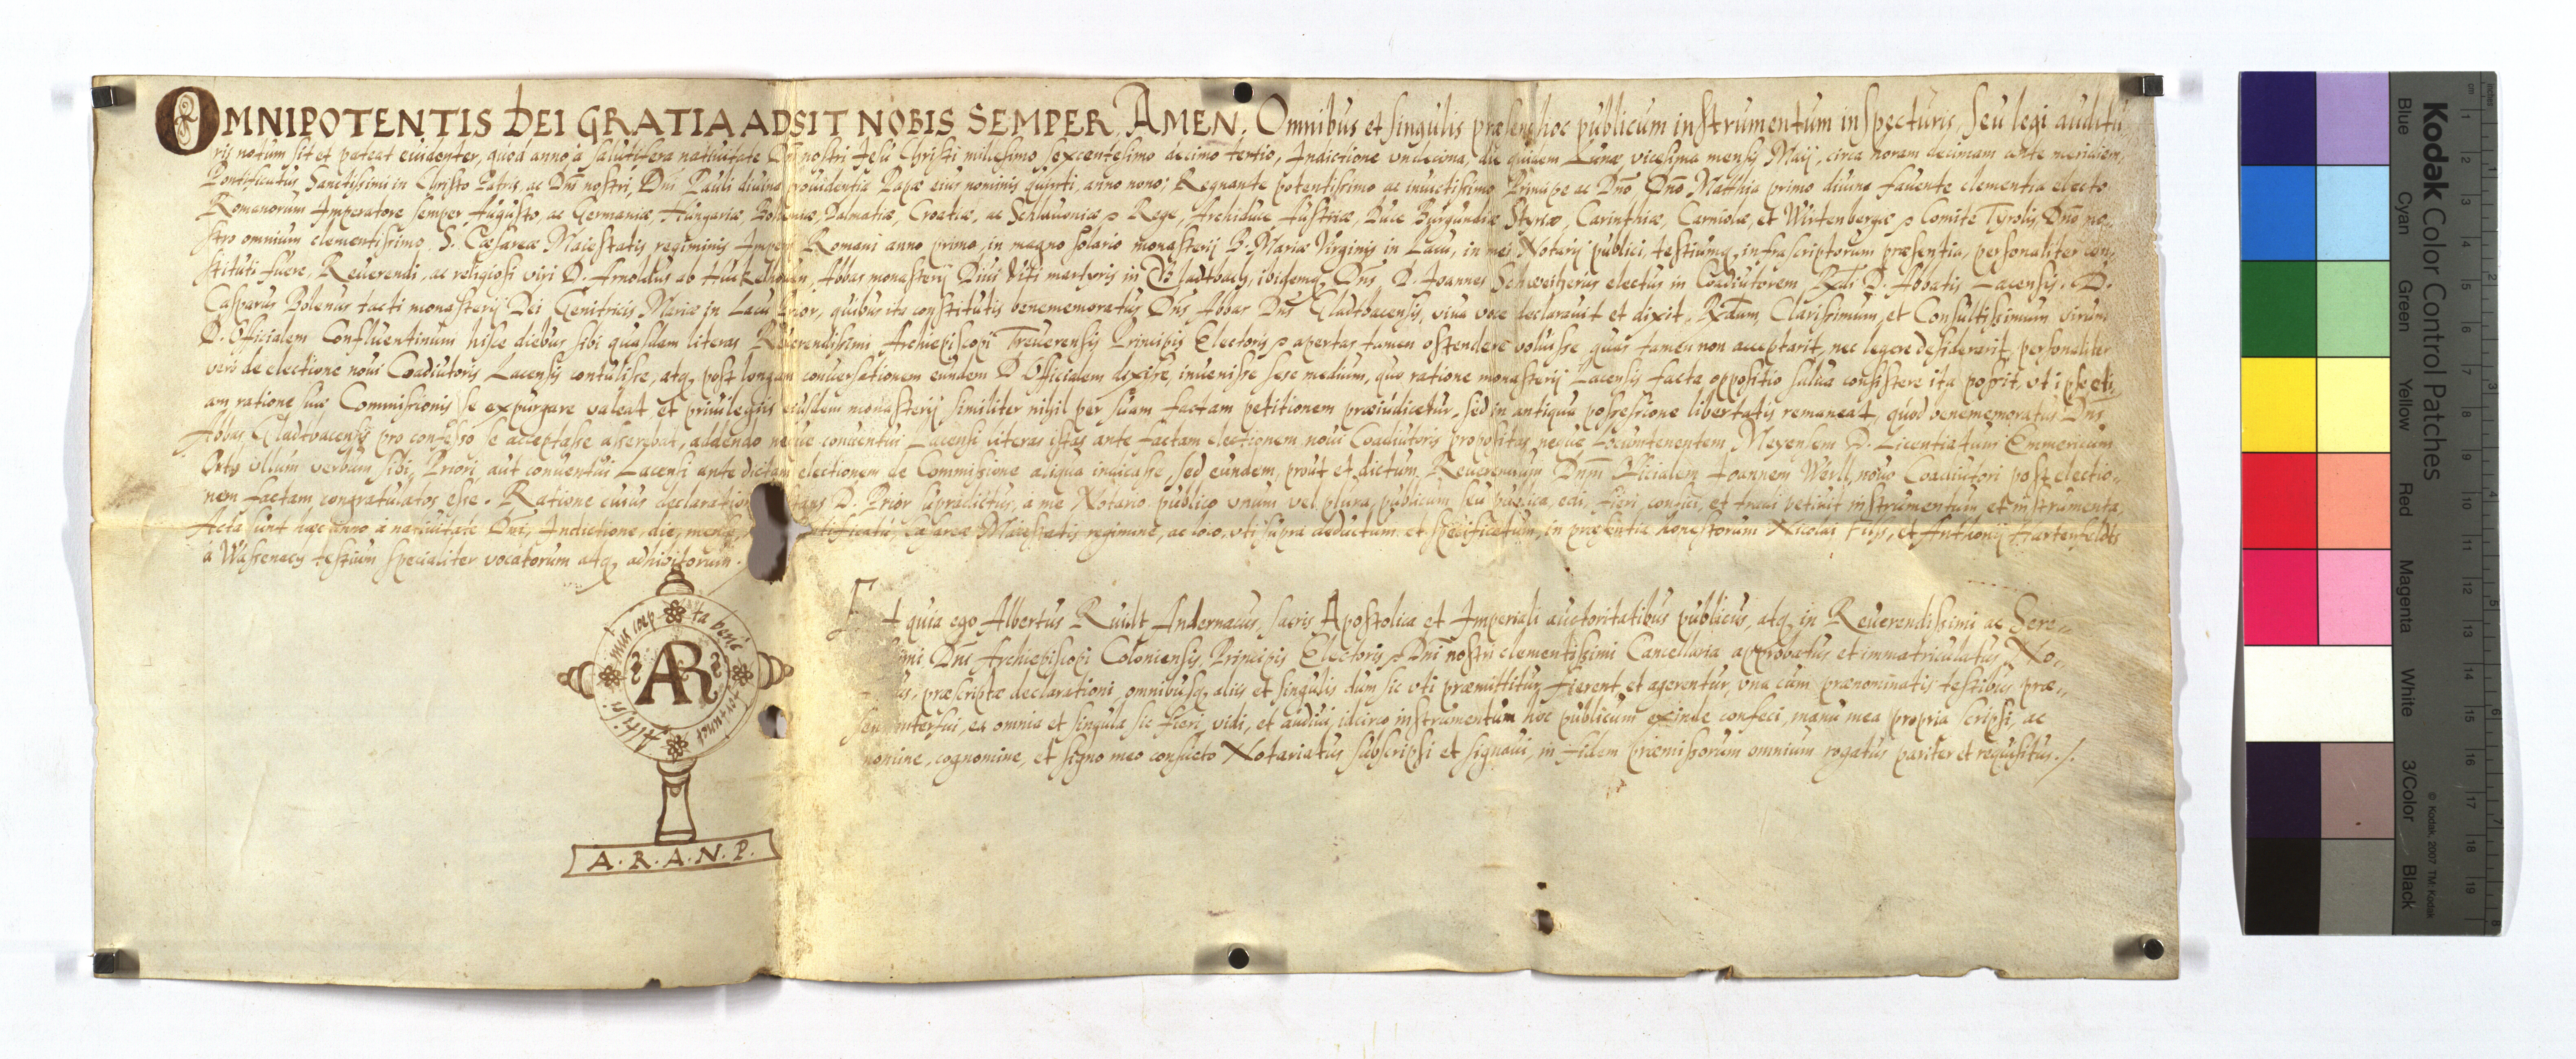 OMNIPOTENTIS DEI GRATIA ADSIT NOBIS SEMPER, AMEN. Omnibus et singulis præsens hoc publicum instrumentum inspecturis, seu legi auditu
ris notum sit et pateat euidenter, quod anno à salutifera natiuitate Dñi nostri Jesu Christi millesimo sexcentesimo decimo tertio, Indictione vndecima, die quidem Lunæ vicesima mensis Maij, circa horam decimam ante meridiem,
Pontificatus Sanctissimi in Christo Patris, ac Dñi nostri, Dñi Pauli diuina prouidentia Papæ eius nominis quinti, anno nono; Regnante potentissimo ac inuictissimo Principe ac Dño Dño Matthia primo diuina fauente clementia electo
Romanorum Imperatore semper Augusto, ac Germaniæ, Hungariæ, Bohemiæ, Dalmatiæ, Croatiæ, ac Schlauoniæ Rege, Archiduce Austriæ, Duce Burgundiæ Styriæ, Carinthiæ, Carniolæ, et Wirtenbergæ Comite Tyrolis, Dño no,,
stro omnium clementissimo, S. Cæsareæ Maiestatis regiminis Imperij Romani anno primo, in magno solario monasterij B. Mariæ Virginis in Lacu, in mei Notarij publici, testiumq, infrascriptorum præsentia, personaliter con,,
stituti fuere, Reuerendi, ac religiosi viri D. Arnoldus ab Huckelhouen, Abbas monasterij Diui Viti martyris in Gladtbach, ibidemq, Dñs D. Joannes Schweiherus electus in Coadiutorem Rdi D. Abbatis Lacensis. D.
Casparus Bolenus tacti monasterij Dei Genitricis Mariæ in Lacu Prior, quibus ita constitutis benememoratus Dñs Abbas Dñs Gladtbacensis, viua voce declarauit et dixit, Rdum, Clarissimum, et Consultissimum virum
D. Officialem Confluentinum hisce diebus sibi quasdam literas Reuerendissimi Archiepiscopi Treuerensis Principis Electoris apertas tamen ostendere voluisse quas tamen non acceptarit, nec legere desiderarit, personaliter
verò de electione noui Coadiutoris Lacensis contulisse, atq, post longam conuersationem eundem D. Officialem dixisse, inuenisse sese medium, quo ratione monasterij Lacensis facta oppositio salua consistere ita possit, vt ipse eti,
am ratione suæ Commissionis se expurgare valeat et priuilegijs eiusdem monasterij similiter nihil per suam factam petitionem præiudicetur, sed in antiqua possessione libertatis remaneat, quod benememoratus Dñs
Abbas Gladtbacensis pro confesso se acceptasse asserebat, addendo neque conuentui Lacensi literas istas ante factam electionem noui Coadiutoris propositas, neque Locumtenentem Meyensem D. Licentiatum Emmericum
Orth vllum verbum sibi, Priori, aut conuentui Lacensi ante dictam electionem de Commissione aliqua indicasse, sed eundem, prout et dictum Reuerendum Dñm Officialem Joannem Werll, nouo Coadiutori post electio,,
nem factam, congratulatos esse. Ratione cuius declaration D. Prior supradictus, a me Notario publico vnum vel plura, publicum seu publica, edi, fieri, confici, et tradi petiuit instrumentum, et instrumenta,
Acta sunt hæc anno à natiuitate Dñi, Indictione, die, mense, Cæsareæ Maiestatis regimine, ac loco, vti supra deductum et specificatum, in præsentia honestorum Nicolai Filss, et Anthonij Hartenfeldts
a Wassenach testium specialiter vocatorum atq, adhibitorum.
Et quia ego Albertus Ruidt Andernacus, sacris Apostolica et Imperiali auctoritatibus publicus, atq, in Reuerendissimi ac Sere,,
imi Dñi Archiepiscopi Coloniensis, Principis Electoris Dñi nostri clementissimi Cancellaria approbatus et immatriculatus No,,
us, præscriptæ declarationi, omnibusq, aliis et singulis dum sic vti præmittitur, fierent et agerentur, vna cum prænominatis testibus præ,,
sen interfui, ea omnia et singula sic fieri, vidi, et audiui, idcirco instrumentum hoc publicum exinde confeci, manu mea propria scripsi, ac
nomine, cognomine, et signo meo consueto Notariatus subscripsi et signaui, in fidem præmissorum omnium rogatus pariter et requisitus ./.
ta benè
fortunet
Altissi
mus coep
AR
A. R. A. N. P.
Kodak Color Control Patches
Blue Cyan Green Yellow Red Magenta White 3/Color Black
© Kodak, 2007 TM: Kodak
cm 1 2 3 4 5 6 7 8 9 10 11 12 13 14 15 16 17 18 19
inches 1 2 3 4 5 6 7 8